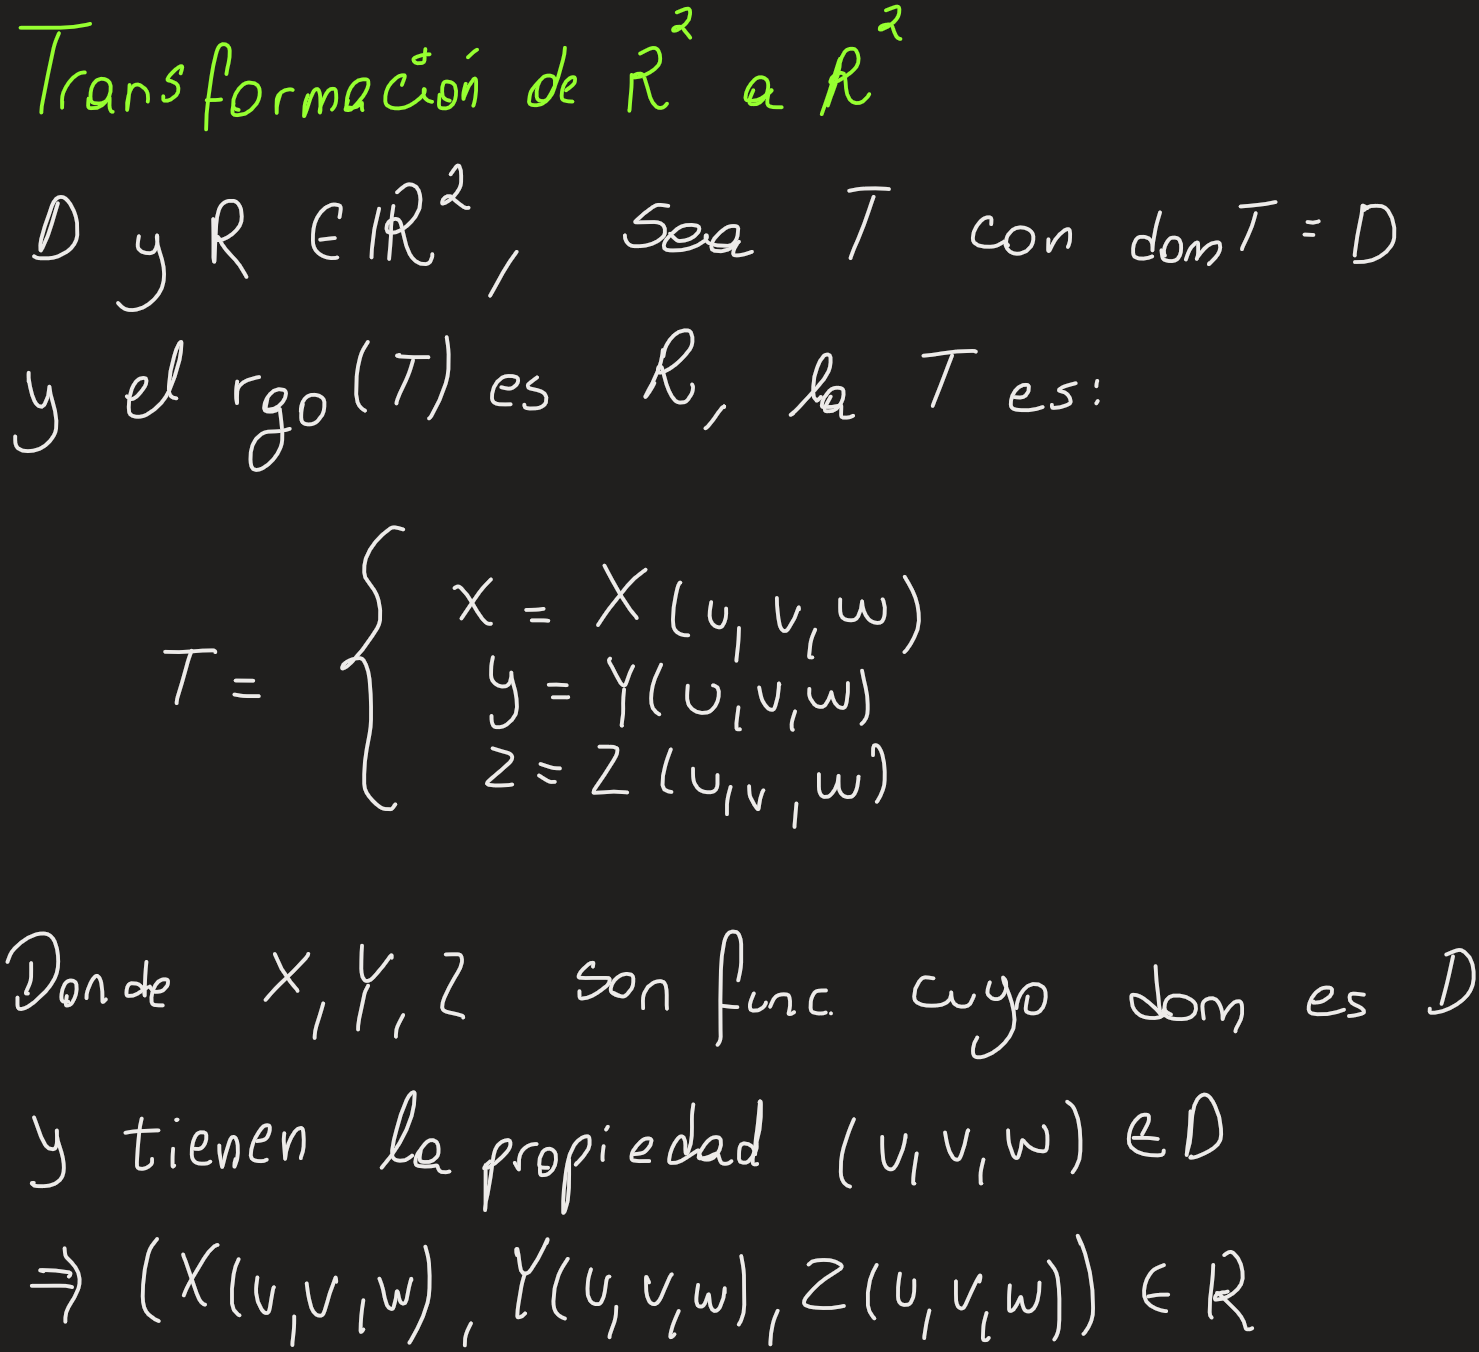 Transformación de R² a R²
D y R ∈ ℝ², sea T con dom T = D
y el rgo(T) es R, la T es:
T = { x = X(u, v, w)
y = Y(u, v, w)
z = Z(u, v, w)
Donde X, Y, Z son func. cuyo dom es D
y tienen la propiedad (u, v, w) ∈ D
⇒ (X(u, v, w), Y(u, v, w), Z(u, v, w)) ∈ R